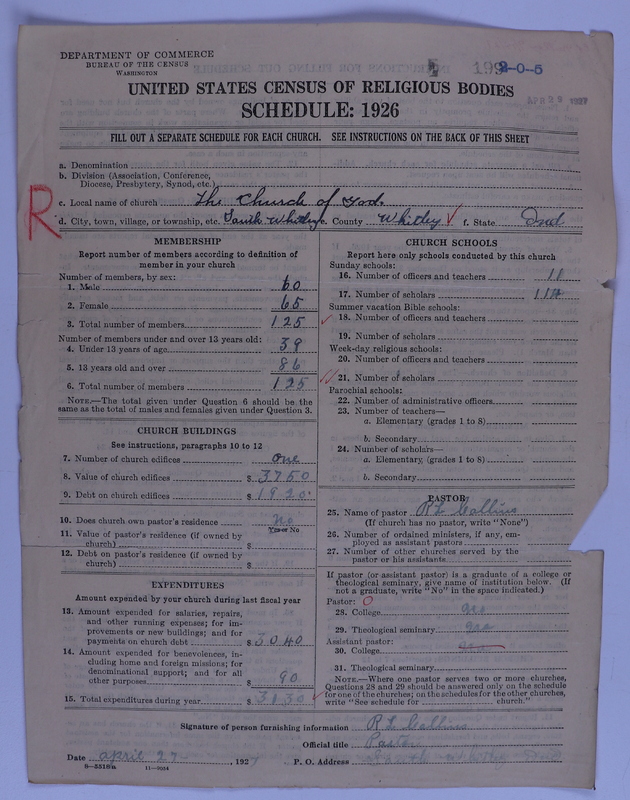 DEPARTMENT OF COMMERCE
BUREAU OF THE CENSUS
WASHINGTON
2-0-5
UNITED STATES CENSUS OF RELIGIOUS BODIES
SCHEDULE: 1926
FILL OUT A SEPARATE SCHEDULE FOR EACH CHURCH. SEE INSTRUCTIONS ON THE BACK OF THIS SHEET
a. Denomination
b. Division (Association, Conference,
Diocese, Presbytery, Synod, etc.)
c. Local name of church The Church of God.
R
d. City, town, village, or township, etc. South Whitley e. County Whitley f. State Ind
MEMBERSHIP
Report number of members according to definition of
member in your church
Number of members, by sex:
1. Male 60
2. Female 65
3. Total number of members 125
Number of members under and over 13 years old:
4. Under 13 years of age 39
5. 13 years old and over 86
6. Total number of members 125
NOTE.—The total given under Question 6 should be the
same as the total of males and females given under Question 3.
CHURCH BUILDINGS
See instructions, paragraphs 10 to 12
7. Number of church edifices one
8. Value of church edifices $ 3750
9. Debt on church edifices $ 1920
10. Does church own pastor's residence No
Yes or No
11. Value of pastor's residence (if owned by
church) $
12. Debt on pastor's residence (if owned by
church) $
EXPENDITURES
Amount expended by your church during last fiscal year
13. Amount expended for salaries, repairs,
and other running expenses; for im-
provements or new buildings; and for
payments on church debt $ 3040
14. Amount expended for benevolences, in-
cluding home and foreign missions; for
denominational support; and for all
other purposes $ 90
15. Total expenditures during year $ 3130
CHURCH SCHOOLS
Report here only schools conducted by this church
Sunday schools:
16. Number of officers and teachers 11
17. Number of scholars
Summer vacation Bible schools:
18. Number of officers and teachers
19. Number of scholars
Week-day religious schools:
20. Number of officers and teachers
21. Number of scholars
Parochial schools:
22. Number of administrative officers
23. Number of teachers—
a. Elementary (grades 1 to 8)
b. Secondary
24. Number of scholars—
a. Elementary (grades 1 to 8)
b. Secondary
PASTOR
25. Name of pastor R L Collins
(If church has no pastor, write "None")
26. Number of ordained ministers, if any, em-
ployed as assistant pastors
27. Number of other churches served by the
pastor or his assistants
If pastor (or assistant pastor) is a graduate of a college or
theological seminary, give name of institution below. (If
not a graduate, write "No" in the space indicated.)
Pastor: O
28. College
29. Theological seminary
Assistant pastor:
30. College
31. Theological seminary
NOTE.—Where one pastor serves two or more churches,
Questions 28 and 29 should be answered only on the schedule
for one of the churches; on the schedules for the other churches,
write "See schedule for church."
Signature of person furnishing information R L Collins
Official title Pastor
Date April 27 , 1927 P. O. Address South Whitley Ind
8-5518a 11-9034